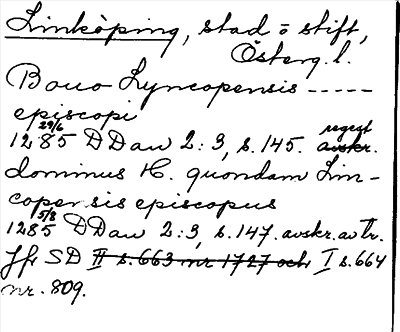 Linköping, stad o stift,
Österg. l.
Bono Lyncopensis -----
episcopi
29/6 regest
1285 DDan 2:3, s. 145. avskr.
dominus H. quondam Lin-
copensis episcopus
5/8
1285 DDan 2:3, s. 147. avskr. av tr.
Jfr SD II s. 663 nr 1727 och I s. 664
nr. 809.